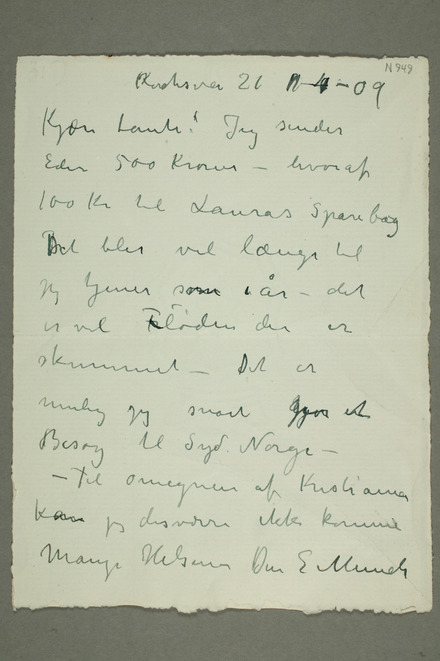 N 949
21 - 4 - 09
Kjære tante! Jeg sender
Eder 500 Kroner – hvoraf
100 Kr til Lauras Sparebog
Det blir vel længe til
jeg tjener som i år – det
er vel Fløden der er
skummet – Det er
mulig jeg snart gjør et
Besøg til Syd. Norge –
– Til omegnen af Kristiania
kan jeg desværre ikke komme
Mange Hilsener Din E Munch